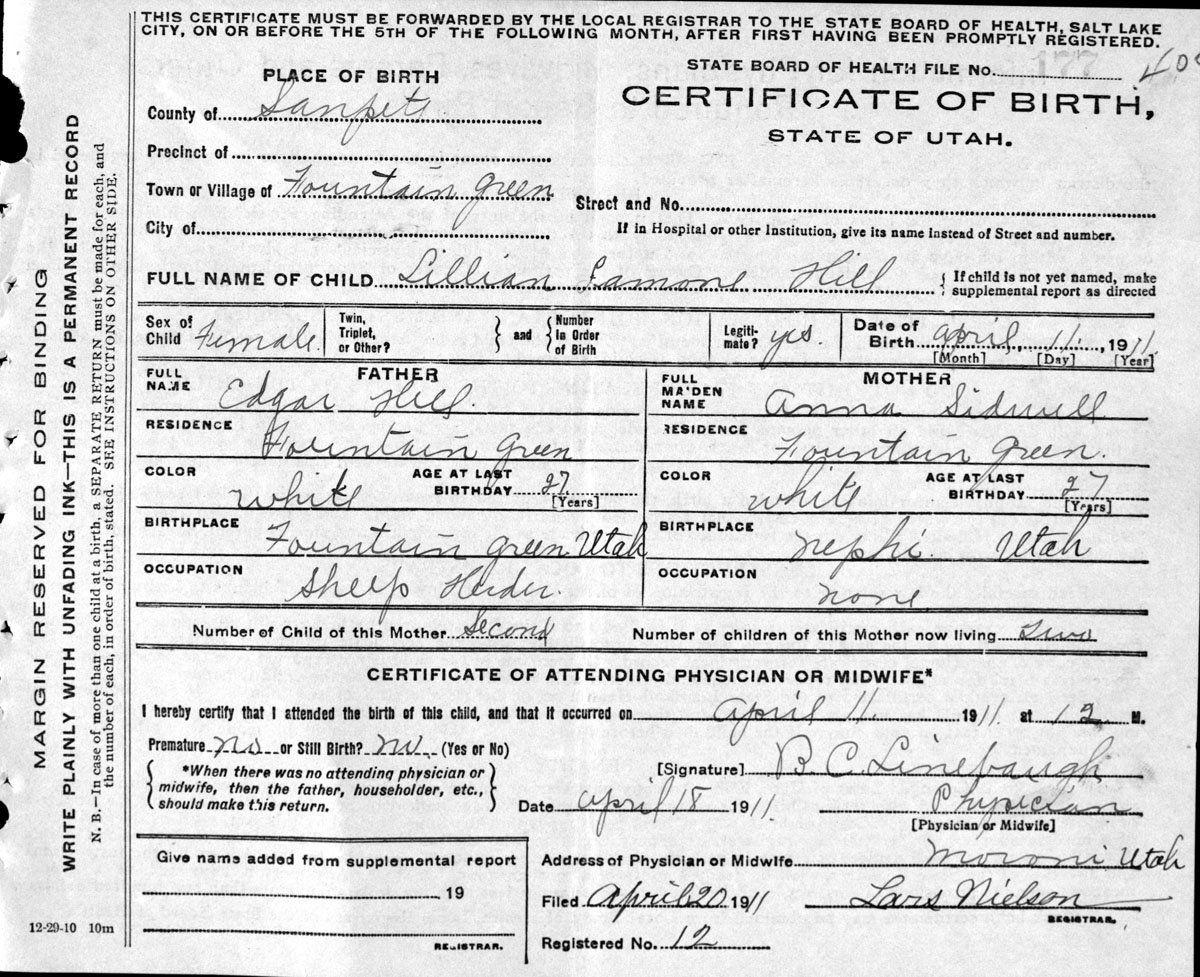 THIS CERTIFICATE MUST BE FORWARDED BY THE LOCAL REGISTRAR TO THE STATE BOARD OF HEALTH, SALT LAKE
CITY, ON OR BEFORE THE 5TH OF THE FOLLOWING MONTH, AFTER FIRST HAVING BEEN PROMPTLY REGISTERED.
MARGIN RESERVED FOR BINDING
WRITE PLAINLY WITH UNFADING INK—THIS IS A PERMANENT RECORD
N. B.—In case of more than one child at a birth, a SEPARATE RETURN must be made for each, and
the number of each, in order of birth, stated. SEE INSTRUCTIONS ON OTHER SIDE.
PLACE OF BIRTH
STATE BOARD OF HEALTH FILE No. 177
CERTIFICATE OF BIRTH,
STATE OF UTAH.
County of Sanpete
Precinct of
Town or Village of Fountain Green
Street and No.
City of
If in Hospital or other Institution, give its name instead of Street and number.
FULL NAME OF CHILD Lillian Lamone Hill
{ If child is not yet named, make
supplemental report as directed
Sex of
Child Female
Twin,
Triplet,
or Other? } and { Number
in Order
of Birth
Legiti-
mate? yes.
Date of
Birth April, 11, 1911
[Month] [Day] [Year]
FATHER
FULL
NAME Edgar Hill.
RESIDENCE Fountain Green
COLOR White
AGE AT LAST
BIRTHDAY 27
[Years]
BIRTHPLACE Fountain Green Utah
OCCUPATION Sheep Herder.
MOTHER
FULL
MAIDEN
NAME Anna Sidwell
RESIDENCE Fountain Green.
COLOR White
AGE AT LAST
BIRTHDAY 27
[Years]
BIRTHPLACE Nephi. Utah
OCCUPATION none.
Number of Child of this Mother Second
Number of children of this Mother now living Two
CERTIFICATE OF ATTENDING PHYSICIAN OR MIDWIFE*
I hereby certify that I attended the birth of this child, and that it occurred on April 11. 1911 at 12 M.
Premature No or Still Birth? No (Yes or No)
{ *When there was no attending physician or
midwife, then the father, householder, etc.,
should make this return. }
[Signature] B. C. Linebaugh
Date April 18 1911. Physician
[Physician or Midwife]
Give name added from supplemental report
19
REGISTRAR.
12-29-10 10m
Address of Physician or Midwife Moroni Utah
Filed April 20 1911 Lars Nielson
REGISTRAR.
Registered No. 12